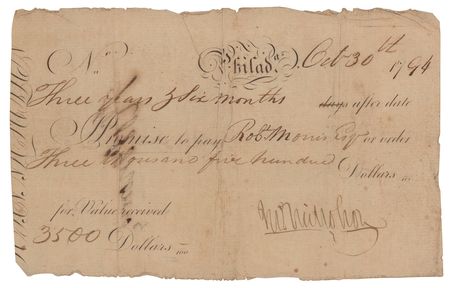 No. Philada. Oct 30th 1794
Three years & Six months days after date
I Promise to pay Robt Morris Esqr or order
Three thousand five hundred Dollars 100
for Value received
3500 Dollars 100
Jno Nicholson